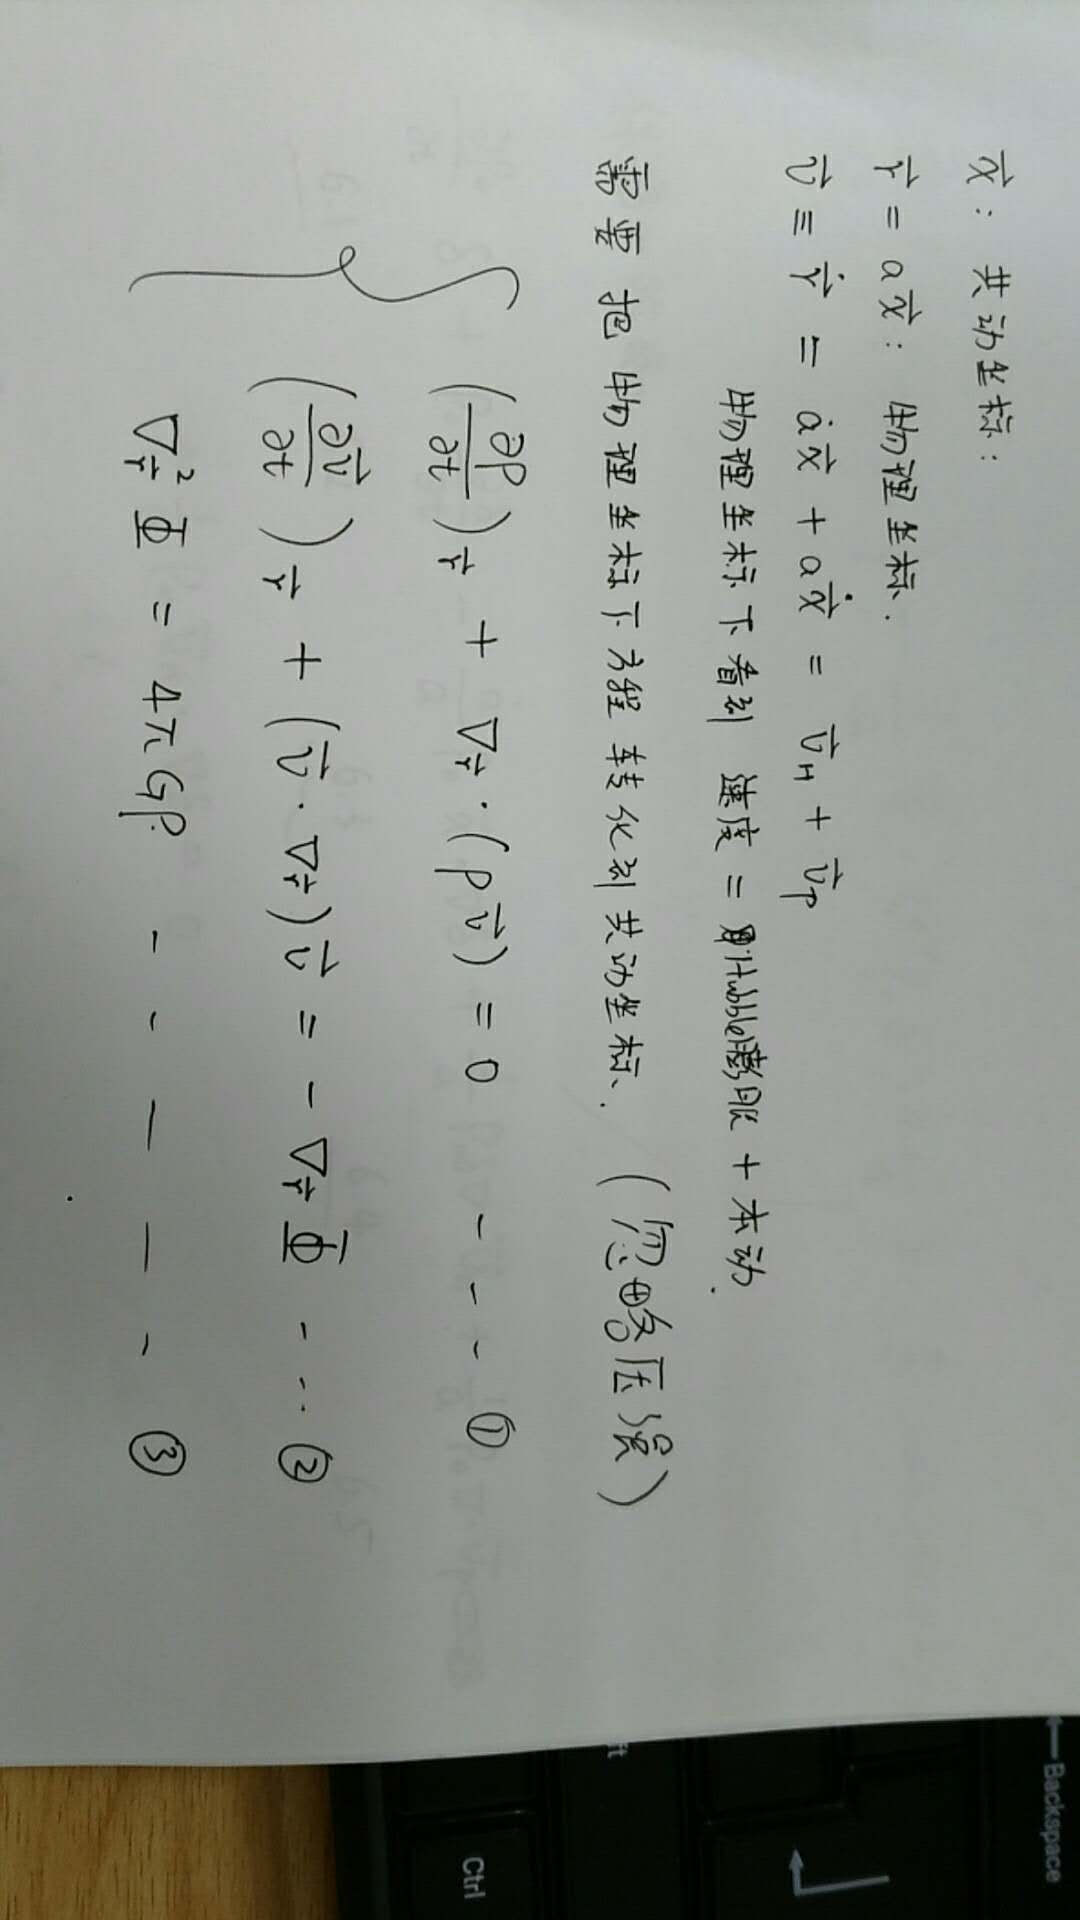 x⃗: 共动坐标:
r⃗ = a x⃗: 物理坐标.
v⃗ ≡ ṙ⃗ = ȧx⃗ + aẋ⃗ = v⃗_H + v⃗_p
物理坐标下看到 速度 = Hubble膨胀 + 本动.
需要把物理坐标下方程转化到共动坐标. (忽略压强)
(∂ρ/∂t)_r⃗ + ∇_r⃗ · (ρv⃗) = 0 - - - ①
(∂v⃗/∂t)_r⃗ + (v⃗ · ∇_r⃗)v⃗ = - ∇_r⃗ Φ - · · ②
∇_r⃗² Φ = 4πGρ. - - - - - ③
← Backspace
Ctrl